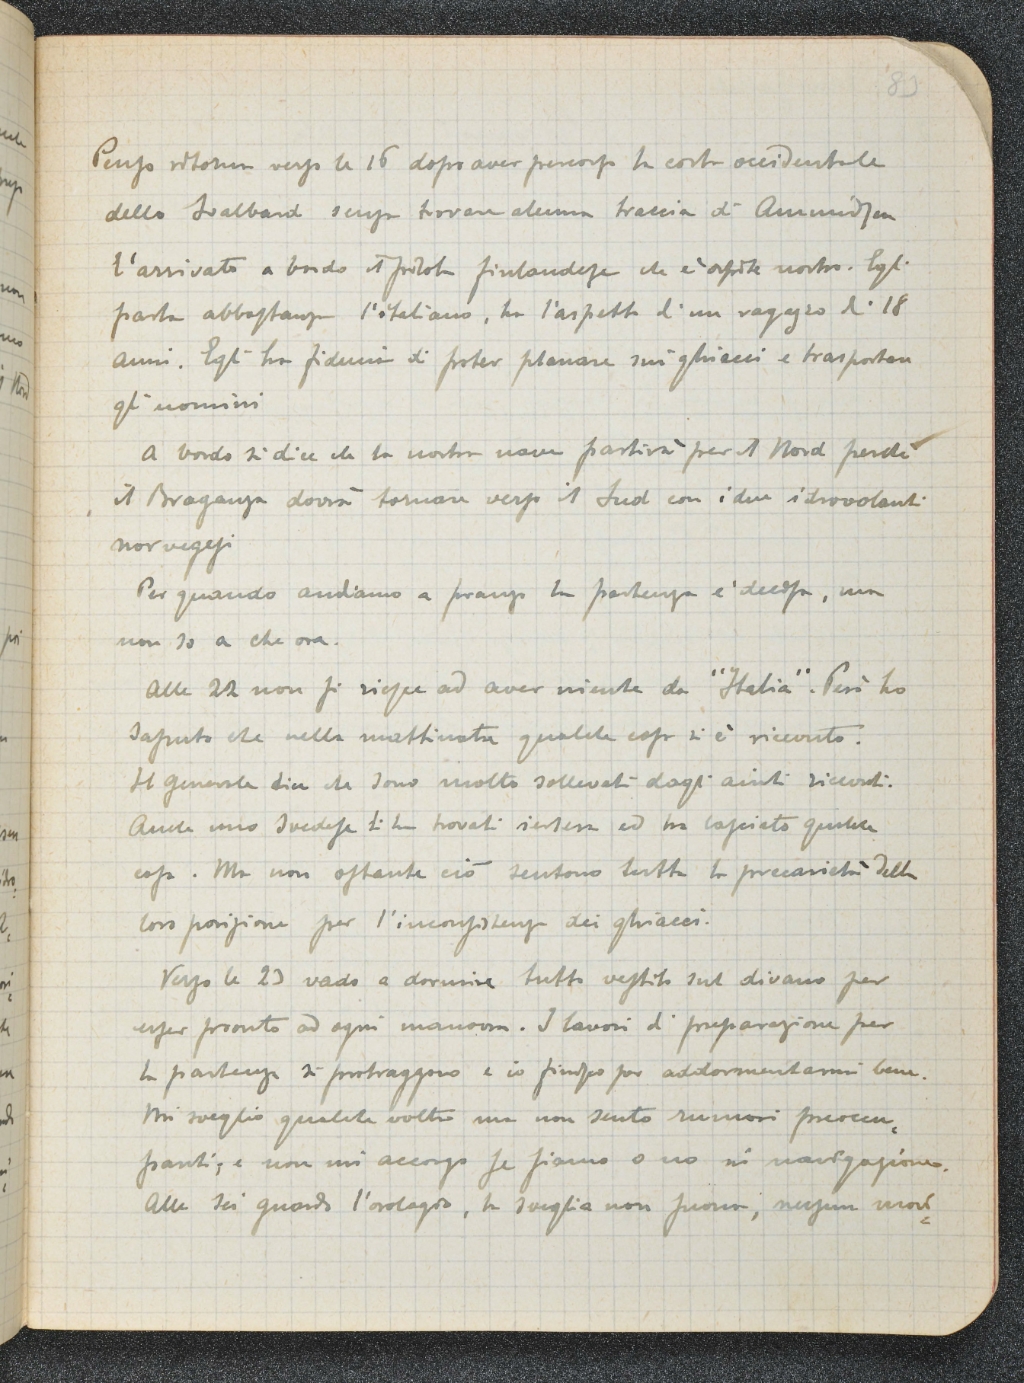 83
Penzo ritorna verso le 16 dopo aver percorso la costa occidentale
dello Svalbard senza trovare alcuna traccia di Amundsen
È arrivato a bordo il pilota finlandese che è ospite nostro. Egli
parla abbastanza l'italiano, ha l'aspetto di un ragazzo di 18
anni. Egli ha fiducia di poter planare sui ghiacci e trasportare
gli uomini
A bordo si dice che la nostra nave partirà per il Nord perchè
il Braganza dovrà tornare verso il Sud con i due idrovolanti
norvegesi
Per quando andiamo a pranzo la partenza è decisa, ma
non so a che ora.
Alle 22 non si riesce ad aver niente da "Italia". Però ho
saputo che nella mattinata qualche cosa si è ricevuto.
Il generale dice che sono molto sollevati dagli aiuti ricevuti.
Anche uno svedese li ha trovati iersera ed ha lasciato qualche
cosa. Ma non ostante ciò sentono tutta la precarietà della
loro posizione per l'inconsistenza dei ghiacci.
Verso le 23 vado a dormire tutto vestito sul divano per
esser pronto ad ogni manovra. I lavori di preparazione per
la partenza si protraggono e io finisco per addormentarmi bene.
Mi sveglio qualche volta ma non sento rumori preoccu=
panti, e non mi accorgo se siamo o no in navigazione.
Alle sei guardo l'orologio, la sveglia non suona, nessun movi=